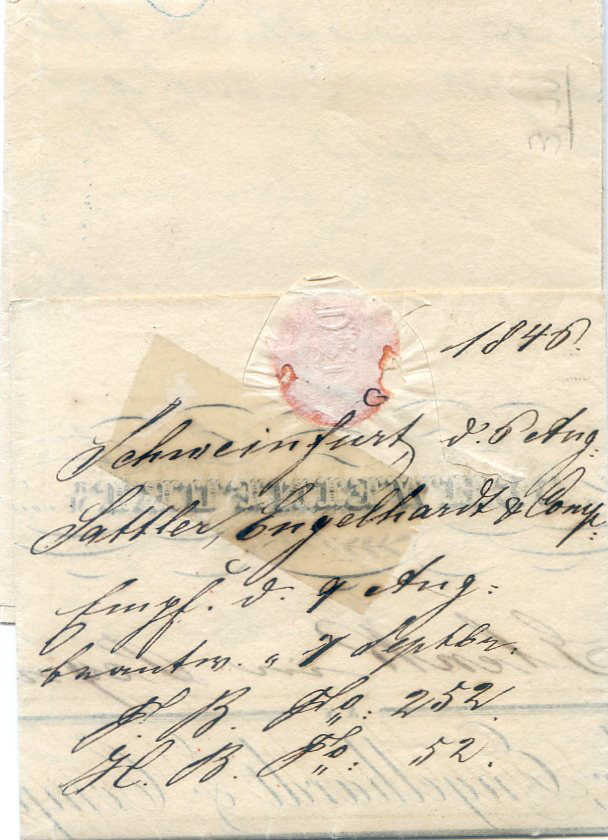 1846.
Schweinfurt d. 6 Aug:
Sattler, Engelhardt & Comp:
Empf. d. 9 Aug:
beantw. " 7 Septbr.
B. Fo: 252.
H. B. Fo: 52.